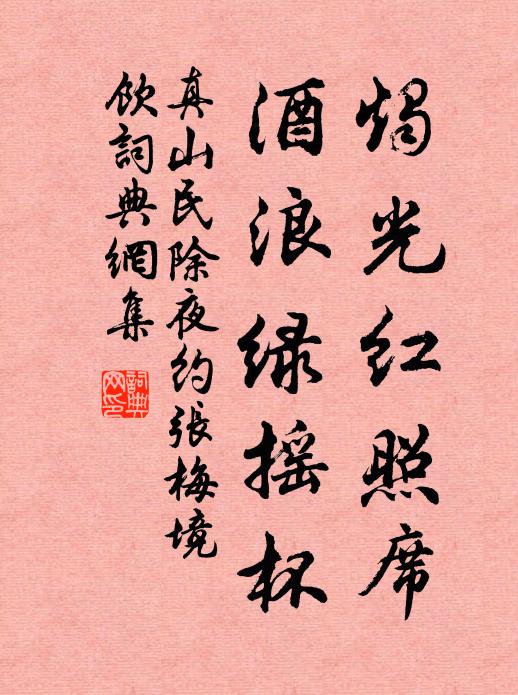 燭光紅照席
酒浪绿摇杯
真山民除夜约張梅境
飲詞典網集
詞典网印